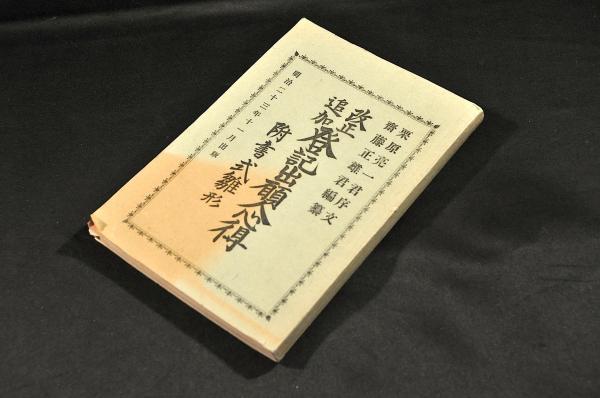 栗原亮一君序文
齋藤正雄君編纂
改正
追加
登記出願心得
附書式雛形
明治二十三年十一月出版